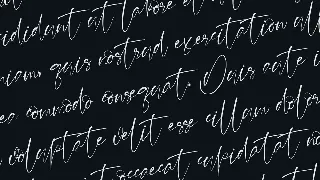 cididunt ut labore et
niam, quis nostrud exercitation ull
ea commodo consequat. Duis aute i
voluptate velit esse cillum dolor
t occaecat cupidatat no